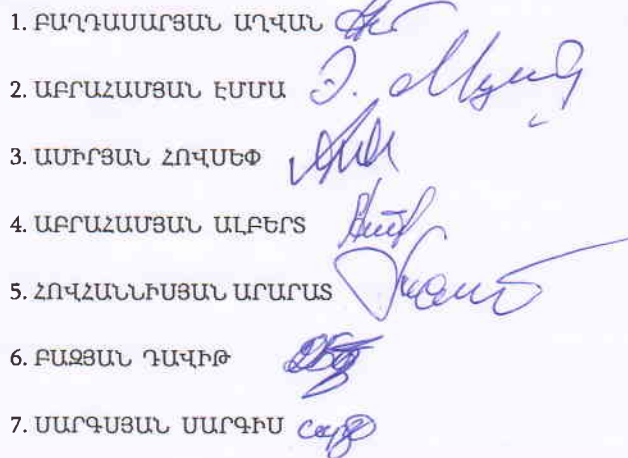 1. ԲԱՂԴԱՍԱՐՅԱՆ ԱՂՎԱՆ
2. ԱԲՐԱՀԱՄՅԱՆ ԷՄՄԱ
3. ԱՄԻՐՅԱՆ ՀՈՎՍԵՓ
4. ԱԲՐԱՀԱՄՅԱՆ ԱԼԲԵՐՏ
5. ՀՈՎՀԱՆՆԻՍՅԱՆ ԱՐԱՐԱՏ
6. ԲԱԶՅԱՆ ԴԱՎԻԹ
7. ՍԱՐԳՍՅԱՆ ՍԱՐԳԻՍ